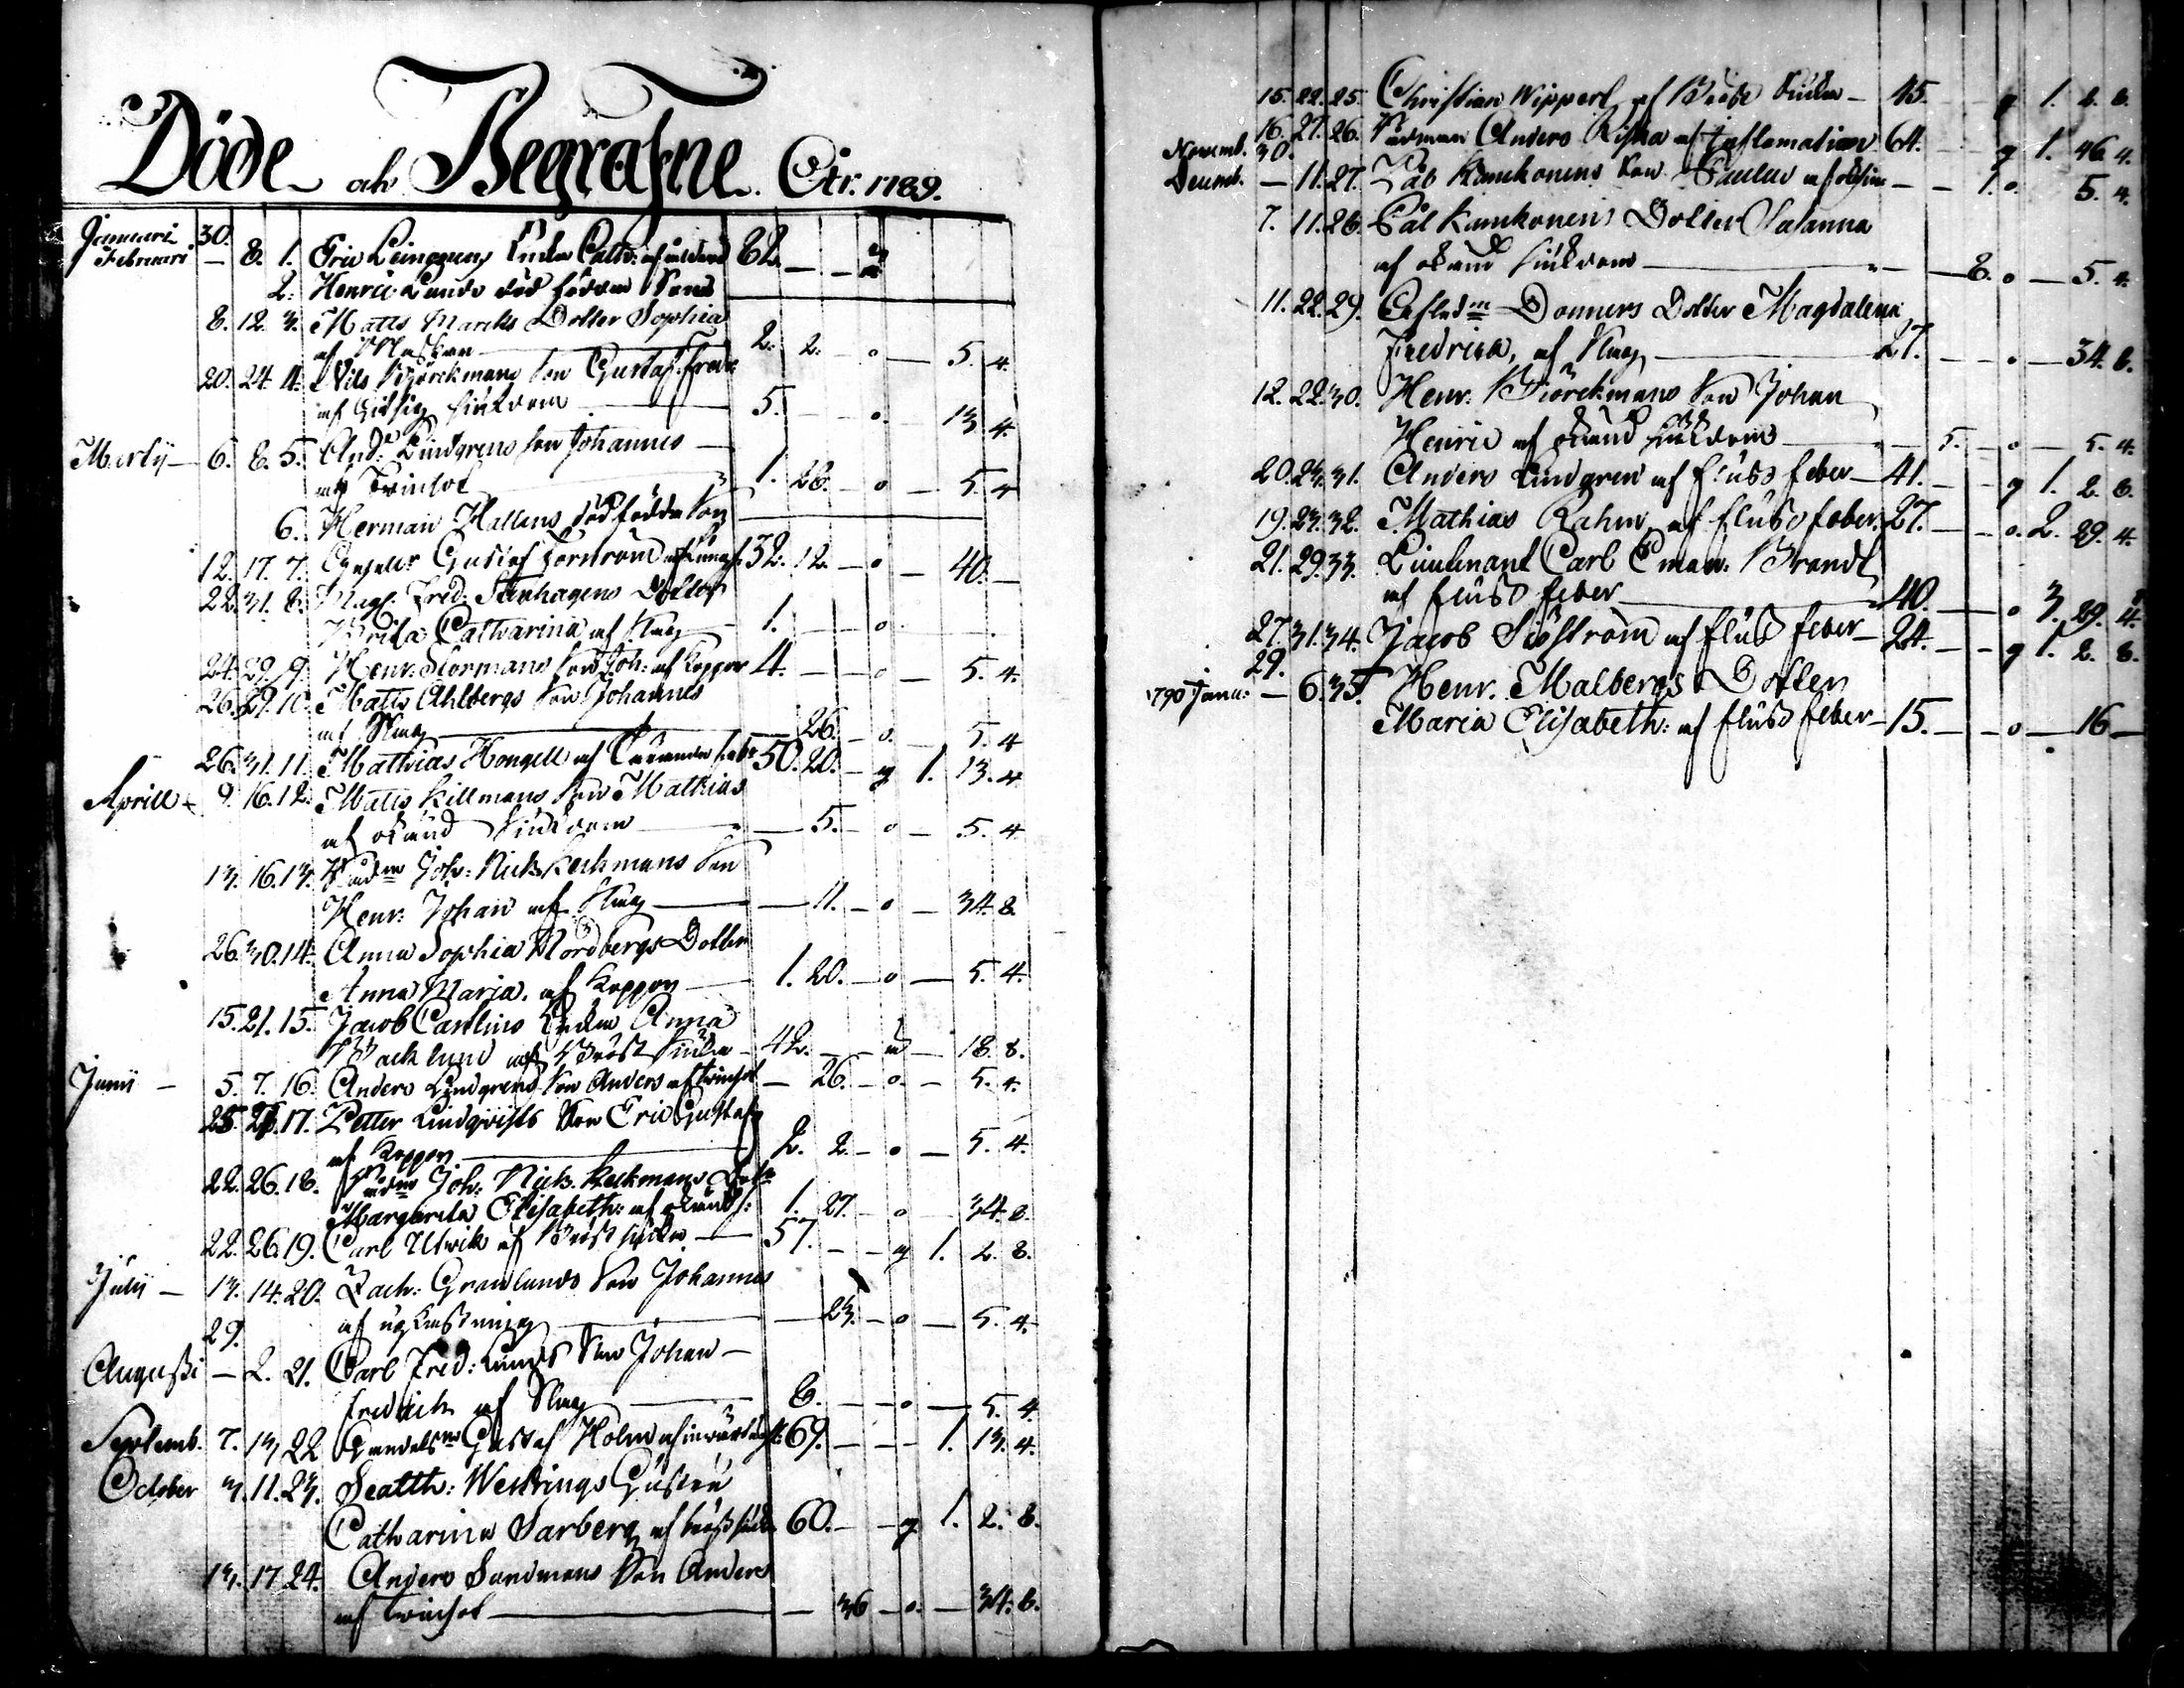 Döde och Begrafne Åhr. 1789.
Januari 30.
Februari — 8. 1. Eric Leinbergs Encka Cath: af ålderd 82. — —
2. Henric Lunds död födde Son
8. 12. 3. Matts Marcks Dotter Sophia
af Masken — 2. 2. — o — 5. 4.
20. 24. 4. Nils Björckmans Son Gustaf Fredr:
af hitsig siukdom — 5. — o — 13. 4.
Martij — 6. 8. 5. And: Lindgrens son Johannes —
af Trinsot — 1. 28. — o — 5. 4.
6. Herman Hallens död födde Son
12. 17. 7. Gesellen Gustaf Törnrom af lungs: 32. 12. — o — 40. —
22. 31. 8. Mag: Fred: Stenhagens Dotter
Brita Catharina af Slag — 1. — o —
24. 29. 9. Henr: Stormans Son Joh: af Koppor 4. — — o — 5. 4.
26. 29. 10. Matts Ahlbergs Son Johannes
af Slag — 26. — o. — 5. 4.
26. 31. 11. Mathias Hongell af feber 50. 20. — g 1. 13. 4.
Aprill — 9. 16. 12. Matts Killmans Son Mathias
af okänd Siukdom — — 5. — o — 5. 4.
13. 16. 13. Rådm Joh: Nick. Keckmans Son
Henr: Johan af Slag — — 11. — o — 34. 8.
26. 30. 14. Anna Sophia Nordbergs Dotter
Anna Maria. af Koppor — 1. 20. — o — 5. 4.
15. 21. 15. Jacob Carelins Encka Anna
Backlund af Bröst siuka — 42. — — 18. 8.
Junii — 5. 7. 16. Anders Lindgrens Son Anders af trinsot — 26. — o. — 5. 4.
17. Petter Lindqvists Son Eric Gustaf
af Koppor — 2. 2. — o — 5. 4.
22. 26. 18. Rådm Joh: Nick. Keckmans Dott:
Margareta Elisabeth: af okänd s: 1. 27. — o — 34. 8.
22. 26. 19. Carl Ulwik af Bröst siuka — 57. — — g 1. 2. 8.
Julij — 13. 14. 20. Zach: Granlunds Son Johannes
af upkastning — — 23. — o — 5. 4.
29.
Augusti — 2. 21. Carl Fred: Lunds Son Johan —
Fredrich af Slag — 8. — — o — 5. 4.
Septemb. 7. 13. 22. Handelsm Gustaf Holm af 69. — — — 1. 13. 4.
October 3. 11. 23. Wekrings Hustru
Catharina Sarberg af bröst siuka 60. — — g 1. 2. 8.
13. 17. 24. Anders Sandmans Son Anders
af trinsot — — 36 — o. — 34. 8.
15. 22. 25. Christian Wippert af Bröst Siuka — 45. — g 1. 2. 8.
16. 27. 26. Rådman Anders Riska af Inflamation 64. — — g 1. 46. 4.
Novemb. 30.
Decemb. — 11. 27. Pål Kamkonens Son Paulus af — — 1. o. 5. 4.
7. 11. 28. Pål Kamkonens Dotter Susanna
af okänd siukdom — — 8. o — 5. 4.
11. 22. 29. Donners Dotter Magdalena
Fredrica, af Slag — 27. — — o — 34. 8.
12. 22. 30. Henr. Biörckmans Son Johan
Henric af okänd siukdom — — 5. — o — 5. 4.
20. 23. 31. Anders Lindgren af fluss feber — 41. — — g 1. 2. 8.
19. 23. 32. Mathias Rahm af fluss feber. 27. — — o. 2. 29. 4.
21. 29. 33. Lieutenant Carl Eman: Brandt
af fluss feber — 40. — o 3. 29. 4.
27. 31. 34. Jacob Siöström af fluss feber — 24. — — g 1. 2. 8.
29.
1790 Janu: — 6. 35. Henr. Malbergs Dotter
Maria Elisabeth: af fluss feber — 15. — — o — 16 —